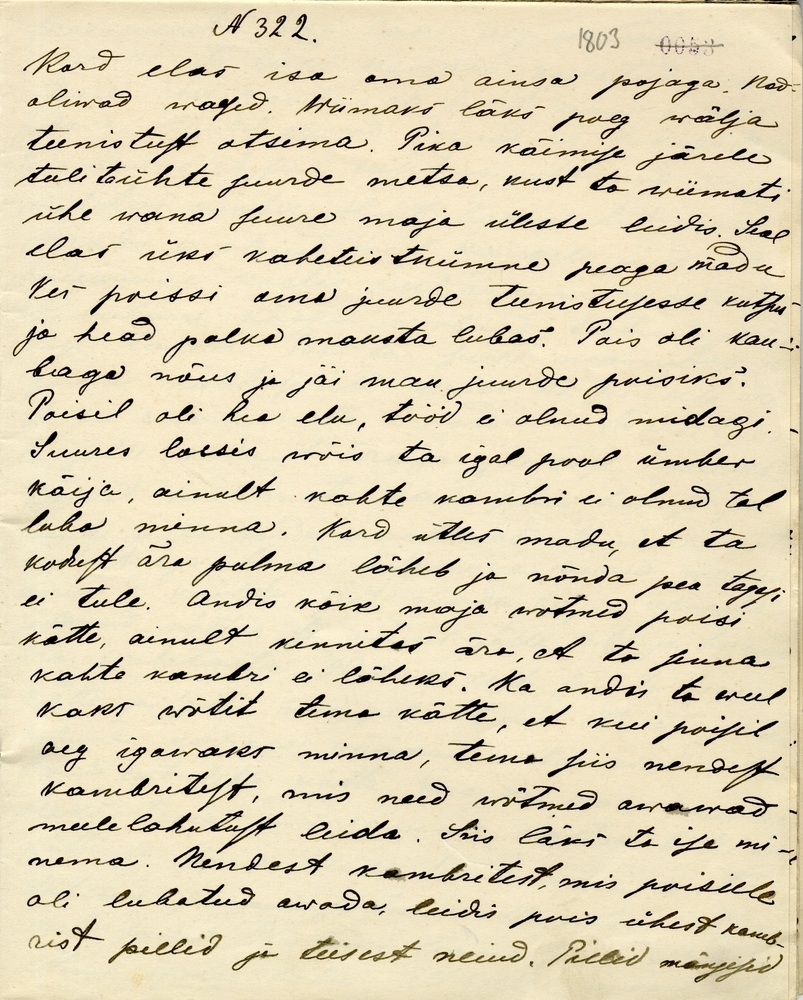 N 322.
1803 0053
Kord elas isa oma ainsa pojaga. Nad
oliwad waesed. Wiimaks läks poeg wälja
teenistust otsima. Pika käimise järele
tuli ta ühte suurde metsa, kust ta wiimati
ühe wana suure maja ülesse leidis. Seal
elas üks kaheteistkümne peaga madu
kes poissi oma juurde teenistusesse kutsus
ja head palka maksta lubas. Pois oli kau-
baga nõus ja jäi mau juurde poisiks.
Poisil oli hea elu, tööd ei olnud midagi.
Suures lossis wõis ta igal pool ümber
käija, ainult kahte kambri ei olnud tal
luba minna. Kord ütles madu, et ta
kodust ära pulma läheb ja nõnda pea tagasi
ei tule. Andis kõik maja wõtmed poisi
kätte, ainult kinnitas ära, et ta sinna
kahte kambri ei läheks. Ka andis ta weel
kaks wõtit tema kätte, et kui poisil
aeg igawaks minna, tema siis nendest
kambritest, mis need wõtmed awawad
meelelahutust leida. Siis läks ta ise mi-
nema. Nendest kambritest, mis poisille
oli lubatud awada, leidis pois ühest kamb-
rist pillid ja teisest neiud. Pillid mängisid